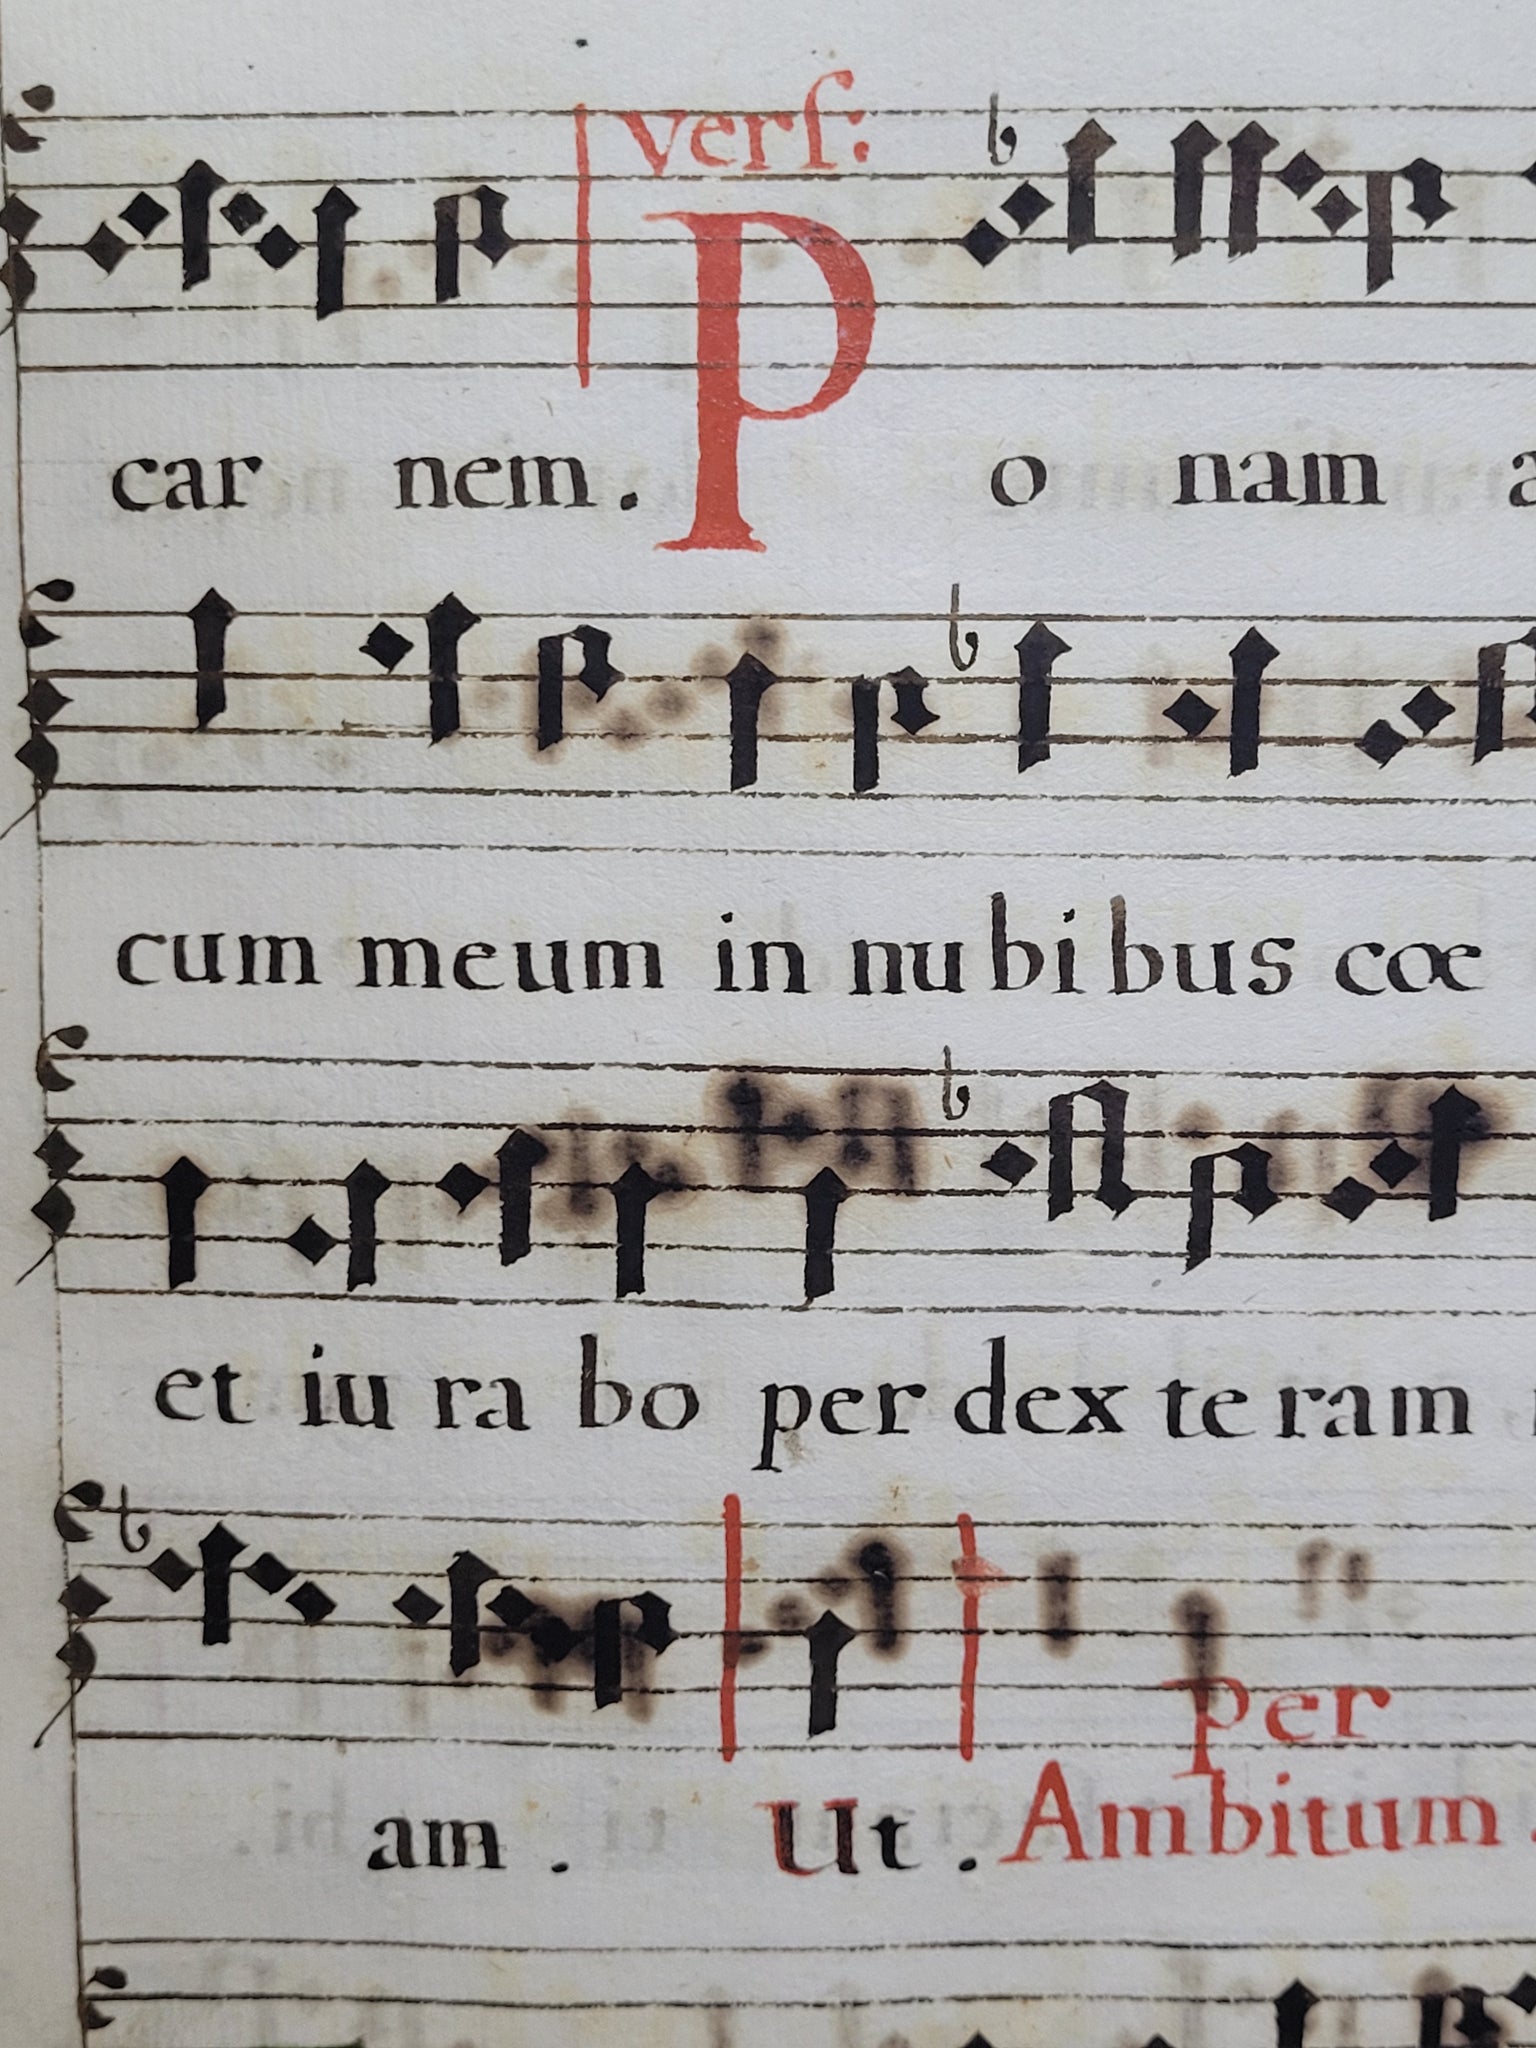 verſ:
car nem. P o nam
cum meum in nu bi bus cœ
et iu ra bo per dex te ram
per
am. Ut. Ambitum.